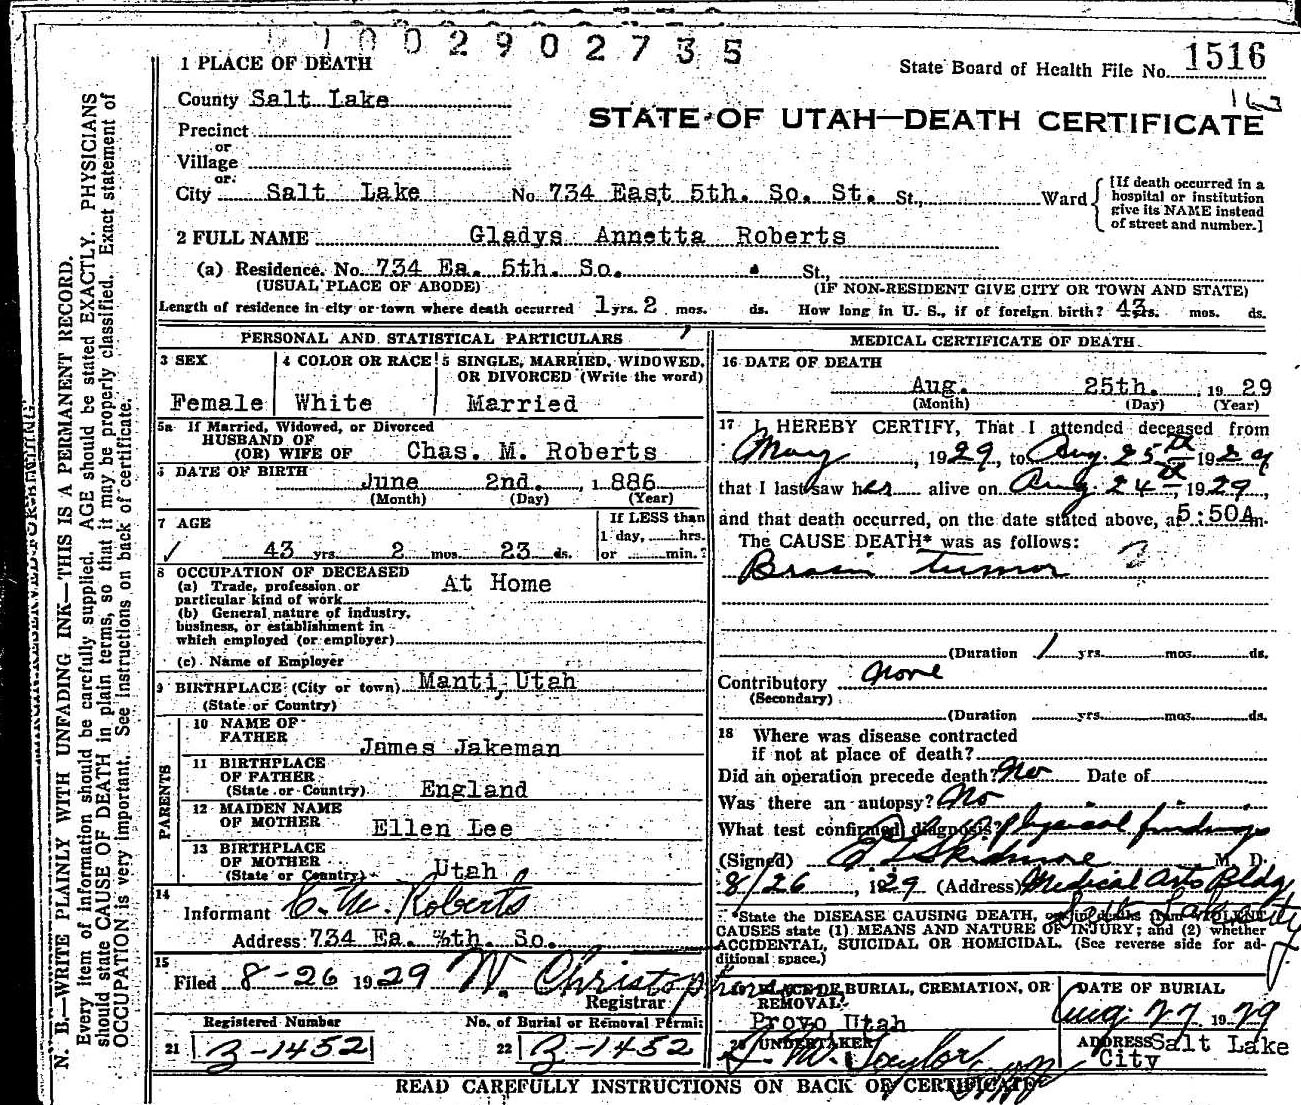 1002902735
1 PLACE OF DEATH
State Board of Health File No. 1516
County Salt Lake
STATE OF UTAH—DEATH CERTIFICATE
Precinct
or
Village
or
City Salt Lake No. 734 East 5th. So. St. St., Ward
[If death occurred in a
hospital or institution
give its NAME instead
of street and number.]
2 FULL NAME Gladys Annetta Roberts
(a) Residence. No. 734 Ea. 5th. So. St.,
(USUAL PLACE OF ABODE) (IF NON-RESIDENT GIVE CITY OR TOWN AND STATE)
Length of residence in city or town where death occurred 1 yrs. 2 mos. ds. How long in U. S., if of foreign birth? 43 yrs. mos. ds.
PERSONAL AND STATISTICAL PARTICULARS
3 SEX 4 COLOR OR RACE 5 SINGLE, MARRIED, WIDOWED,
OR DIVORCED (Write the word)
Female White Married
5a If Married, Widowed, or Divorced
HUSBAND OF
(OR) WIFE OF Chas. M. Roberts
6 DATE OF BIRTH June 2nd. , 1886
(Month) (Day) (Year)
7 AGE If LESS than
1 day, hrs.
43 yrs. 2 mos. 23 ds. or min.?
8 OCCUPATION OF DECEASED
(a) Trade, profession or At Home
particular kind of work
(b) General nature of industry,
business, or establishment in
which employed (or employer)
(c) Name of Employer
9 BIRTHPLACE (City or town) Manti, Utah
(State or Country)
PARENTS
10 NAME OF
FATHER James Jakeman
11 BIRTHPLACE
OF FATHER
(State or Country) England
12 MAIDEN NAME
OF MOTHER Ellen Lee
13 BIRTHPLACE
OF MOTHER
(State or Country) Utah
14
Informant C. M. Roberts
Address: 734 Ea. %th. So.
15
Filed 8-26 1929 W. Christopherson
Registrar
Registered Number No. of Burial or Removal Permit
21 B-1452 22 B-1452
MEDICAL CERTIFICATE OF DEATH
16 DATE OF DEATH
Aug. 25th. , 1929
(Month) (Day) (Year)
17 I HEREBY CERTIFY, That I attended deceased from
May , 1929, to Aug. 25th 1929
that I last saw her alive on Aug. 24th, 1929,
and that death occurred, on the date stated above, at 5:50A m.
The CAUSE DEATH* was as follows:
Brain tumor ?
(Duration 1 yrs. mos. ds.
Contributory None
(Secondary)
(Duration yrs. mos. ds.
18 Where was disease contracted
if not at place of death?
Did an operation precede death? No Date of
Was there an autopsy? No
What test confirmed diagnosis? Physical findings
(Signed) Skidmore M. D.
8/26 , 1929 (Address) Medical Arts Bldg
Salt Lake City
*State the DISEASE CAUSING DEATH, or in deaths from VIOLENT
CAUSES state (1) MEANS AND NATURE OF INJURY; and (2) whether
ACCIDENTAL, SUICIDAL OR HOMICIDAL. (See reverse side for ad-
ditional space.)
19 PLACE OF BURIAL, CREMATION, OR DATE OF BURIAL
REMOVAL
Provo Utah Aug. 27 1929
20 UNDERTAKER ADDRESS Salt Lake
Taylor City
READ CAREFULLY INSTRUCTIONS ON BACK OF CERTIFICATE
N. B.—WRITE PLAINLY WITH UNFADING INK—THIS IS A PERMANENT RECORD.
Every item of information should be carefully supplied. AGE should be stated EXACTLY. PHYSICIANS
should state CAUSE OF DEATH in plain terms, so that it may be properly classified. Exact statement of
OCCUPATION is very important. See instructions on back of certificate.